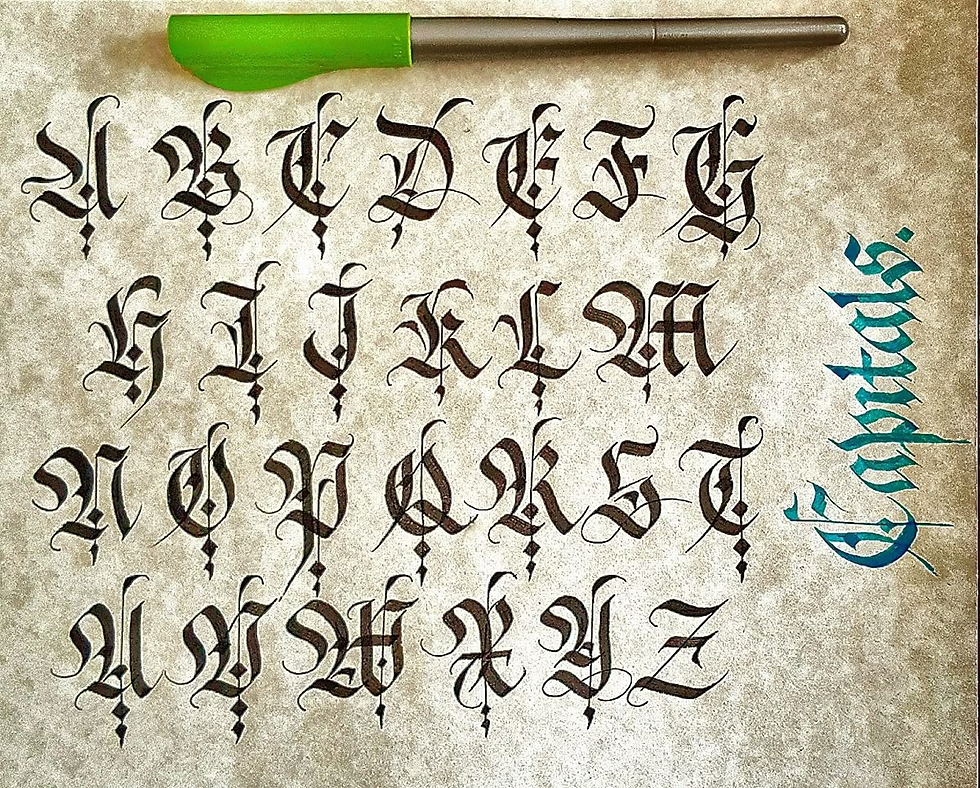 A B C D E F G
H I J K L M
N O P Q R S T
U V W X Y Z
Capitals.